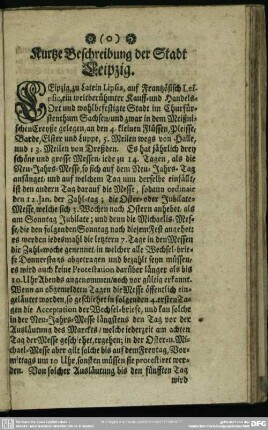 (o)
Kurtze Beschreibung der Stadt
Leipzig.
LEipzig, zu Latein Lipsia, auf Frantzösisch Lei-
psic, ein weltberühmter Kauff- und Handels-
Ort und wohlbefestigte Stadt im Churfür-
stenthum Sachsen, und zwar in dem Meißni-
schen Creyße gelegen, an den 4. kleinen Flüssen, Pleisse,
Parde, Elster und Luppe, 5. Meilen wegs von Halle,
und 13. Meilen von Dreßden. Es hat jährlich drey
schöne und grosse Messen, iede zu 14. Tagen, als die
Neu-Jahrs-Messe, so sich auf dem Neu-Jahrs-Tag
anfänget, und auf welchem Tag nun derselbe einfällt,
ist den andern Tag darauf die Messe, sodann
den 12. Jan. der Zahl-tag; die Oster- oder Jubilate-
Messe, welche sich 3. Wochen nach Ostern anhebet als
am Sonntag Jubilate; und denn die Michaelis-Mes-
se, die den folgenden Sonntag nach diesem Fest angehet
es werden iedesmahl die letztern 7. Tage in den Messen
die Zahl-woche genennet, in welcher alle Wechsel-brie-
fe Donnerstags abgetragen und bezahlt seyn müssen,
es wird auch keine Protestation darüber länger als bis
10. Uhr Abends angenommen, noch vor gültig erkannt.
Wenn an abgemeldten Tagen die Messe öffentlich ein-
geläutet worden, so geschiehet in folgenden 4. ersten Ta-
gen die Acceptation der Wechsel-briefe, und kan solche
in der Neu-Jahrs-Messe längstens den Tag vor der
Ausläutung des Marckts, welche iederzeit am achten
Tag der Messe geschiehet, ergehen; in der Oster- u. Mi-
chael-Messe aber gilt solche bis auf dem Freytag, Vor-
mittags um 10 Uhr, sonsten müssen sie protestiret wer-
den. Von solcher Ausläutung bis den fünfften Tag
wird